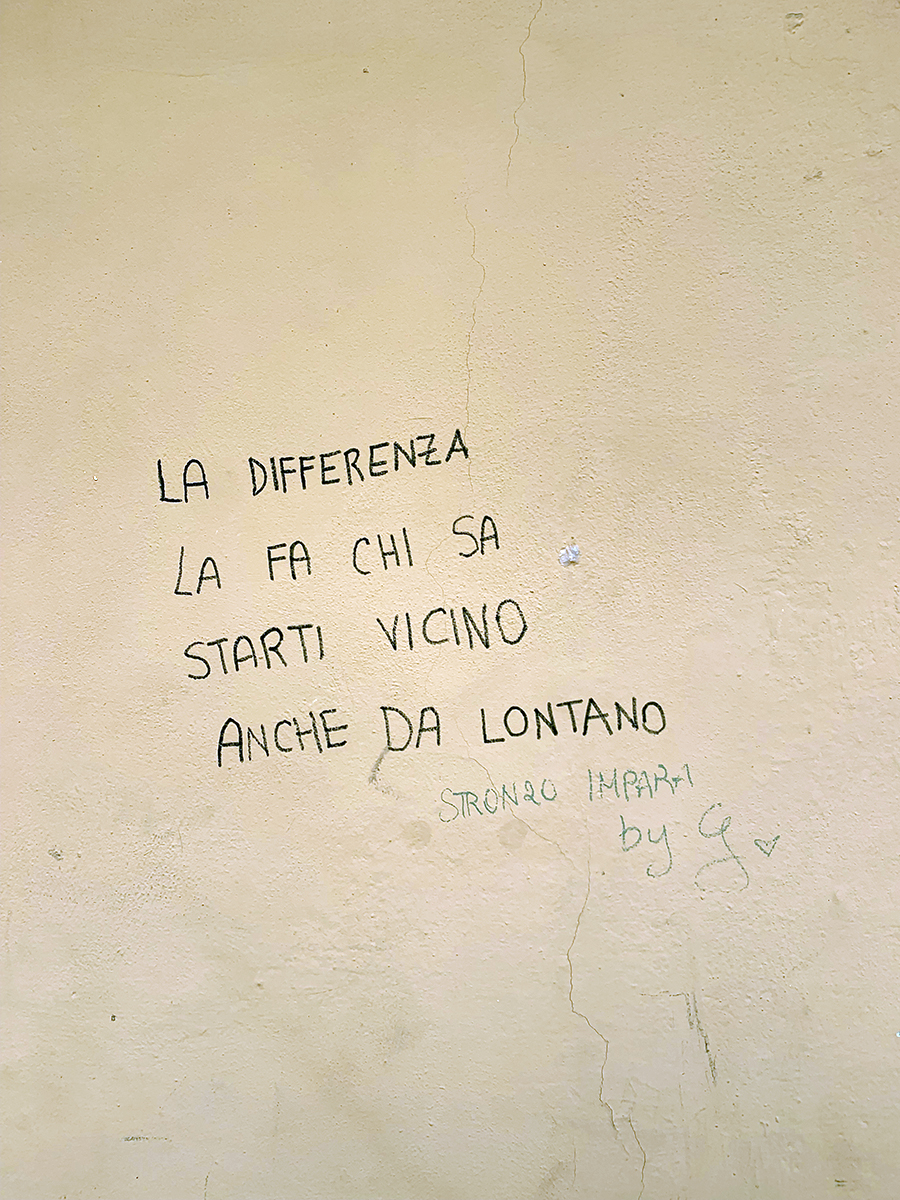 LA DIFFERENZA
LA FA CHI SA
STARTI VICINO
ANCHE DA LONTANO
STRONZO IMPARA
by G ♡